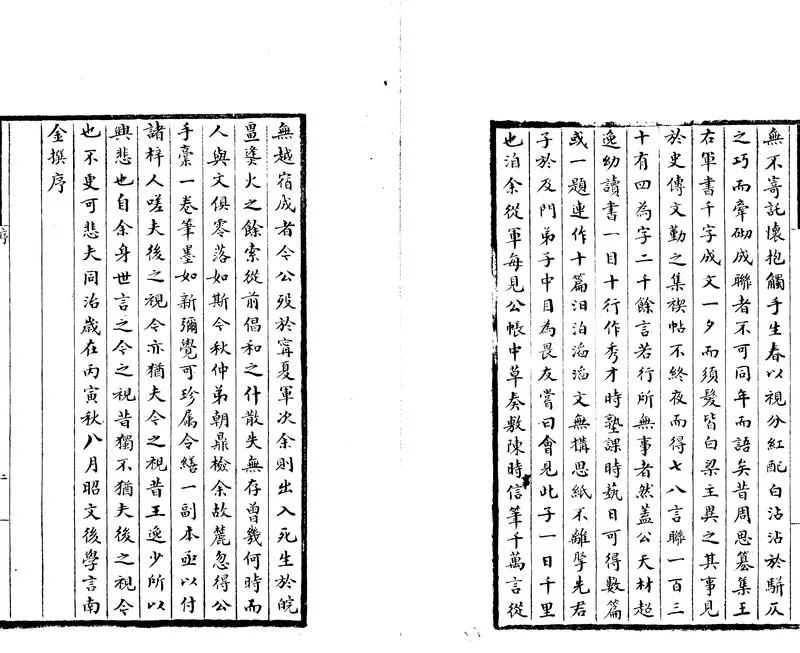 無不寄託懷抱觸手生春以視分紅配白沾沾於駢仄
之巧而牽砌成聯者不可同年而語矣昔周思纂集王
右軍書千字成文一夕而須髮皆白梁主異之其事見
於史傳文勤之集禊帖不終夜而得七八言聯一百三
十有四為字二千餘言若行所無事者然蓋公天材超
逸幼讀書一目十行作秀才時塾課時藝日可得數篇
或一題連作十篇汩汩滔滔文無搆思紙不離擘先君
子於及門弟子中目為畏友嘗曰會見此子一日千里
也洎余從軍每見公帳中草奏敷陳時信筆千萬言從
無越宿成者今公歿於寗夏軍次余則出入死生於皖
畺瀵火之餘索從前倡和之什散失無存曾幾何時而
人與文俱零落如斯今秋仲弟朝鼎檢余故麓忽得公
手稾一卷筆墨如新彌覺可珍属令繕一副本亟以付
諸梓人嗟夫後之視今亦猶夫今之視昔王逸少所以
興悲也自余身世言之今之視昔獨不猶夫後之視今
也不更可悲夫同治歲在丙寅秋八月昭文後學言南
金撰序
序
二